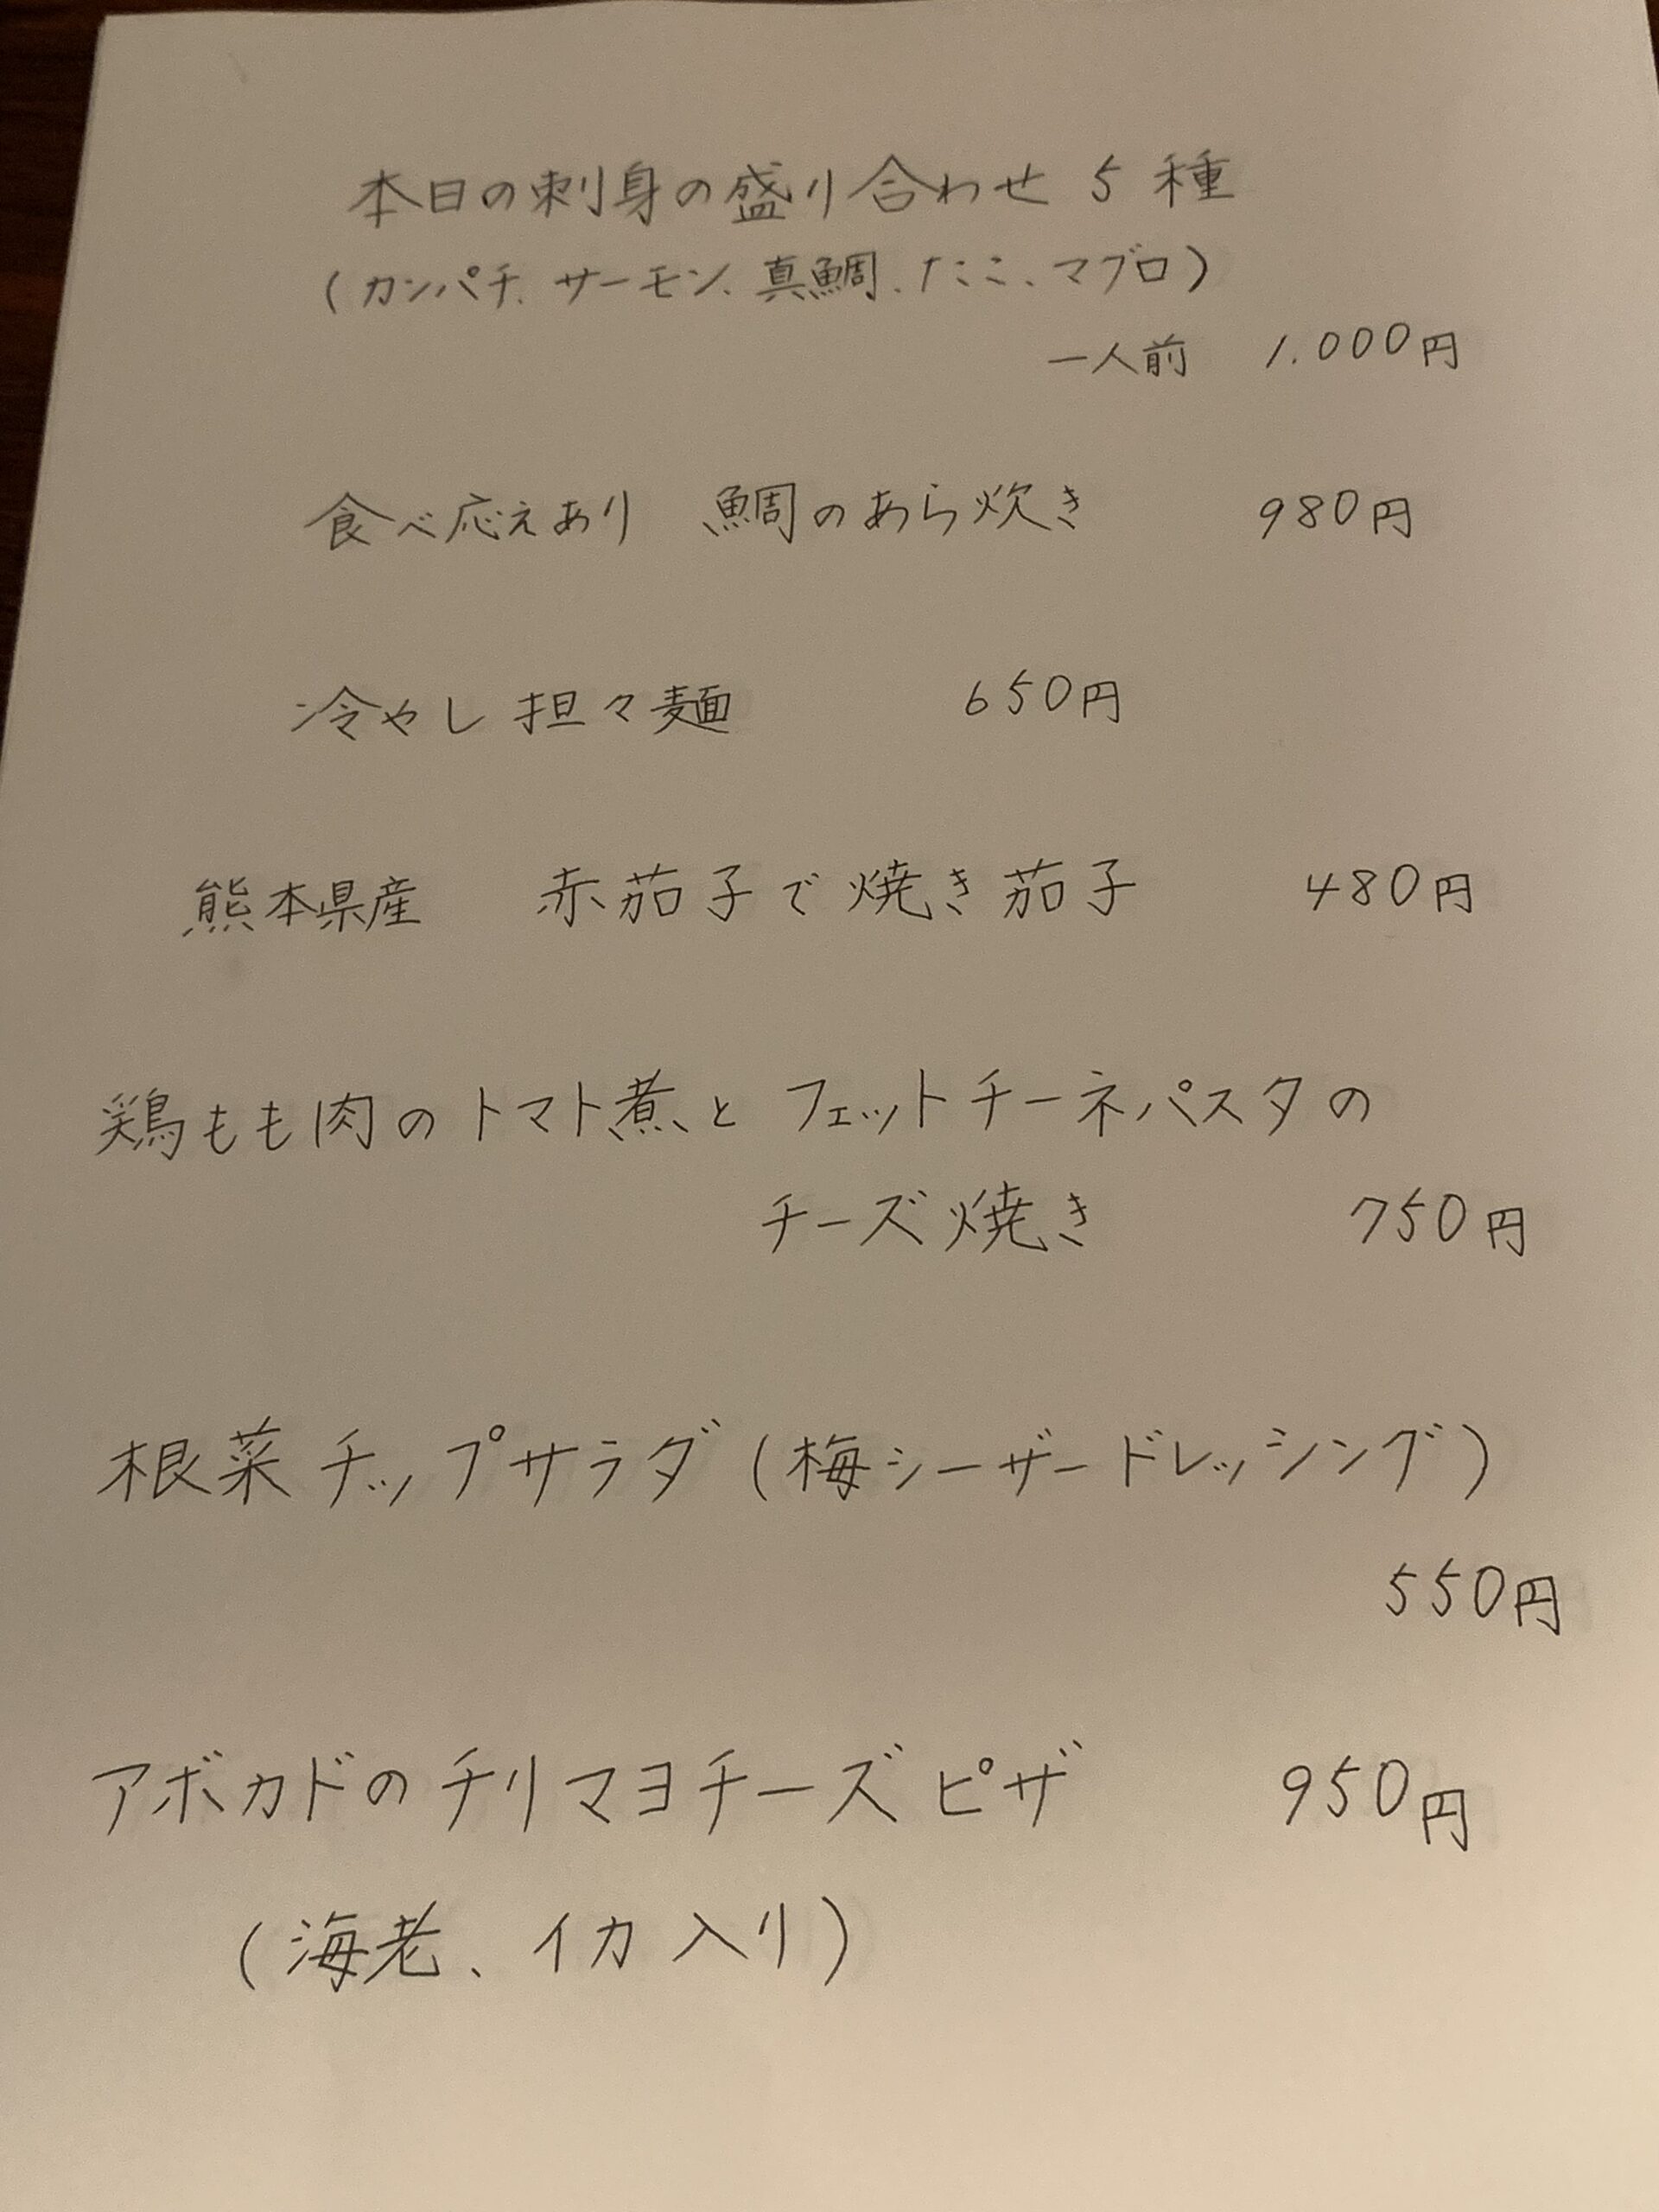 本日の刺身の盛り合わせ 5種
(カンパチ、サーモン、真鯛、たこ、マグロ)
一人前 1.000円
食べ応えあり 鯛のあら炊き 980円
冷やし担々麺 650円
熊本県産 赤茄子で焼き茄子 480円
鶏もも肉のトマト煮とフェットチーネパスタの
チーズ焼き 750円
根菜チップサラダ(梅シーザードレッシング)
550円
アボカドのチリマヨチーズピザ 950円
(海老、イカ入り)